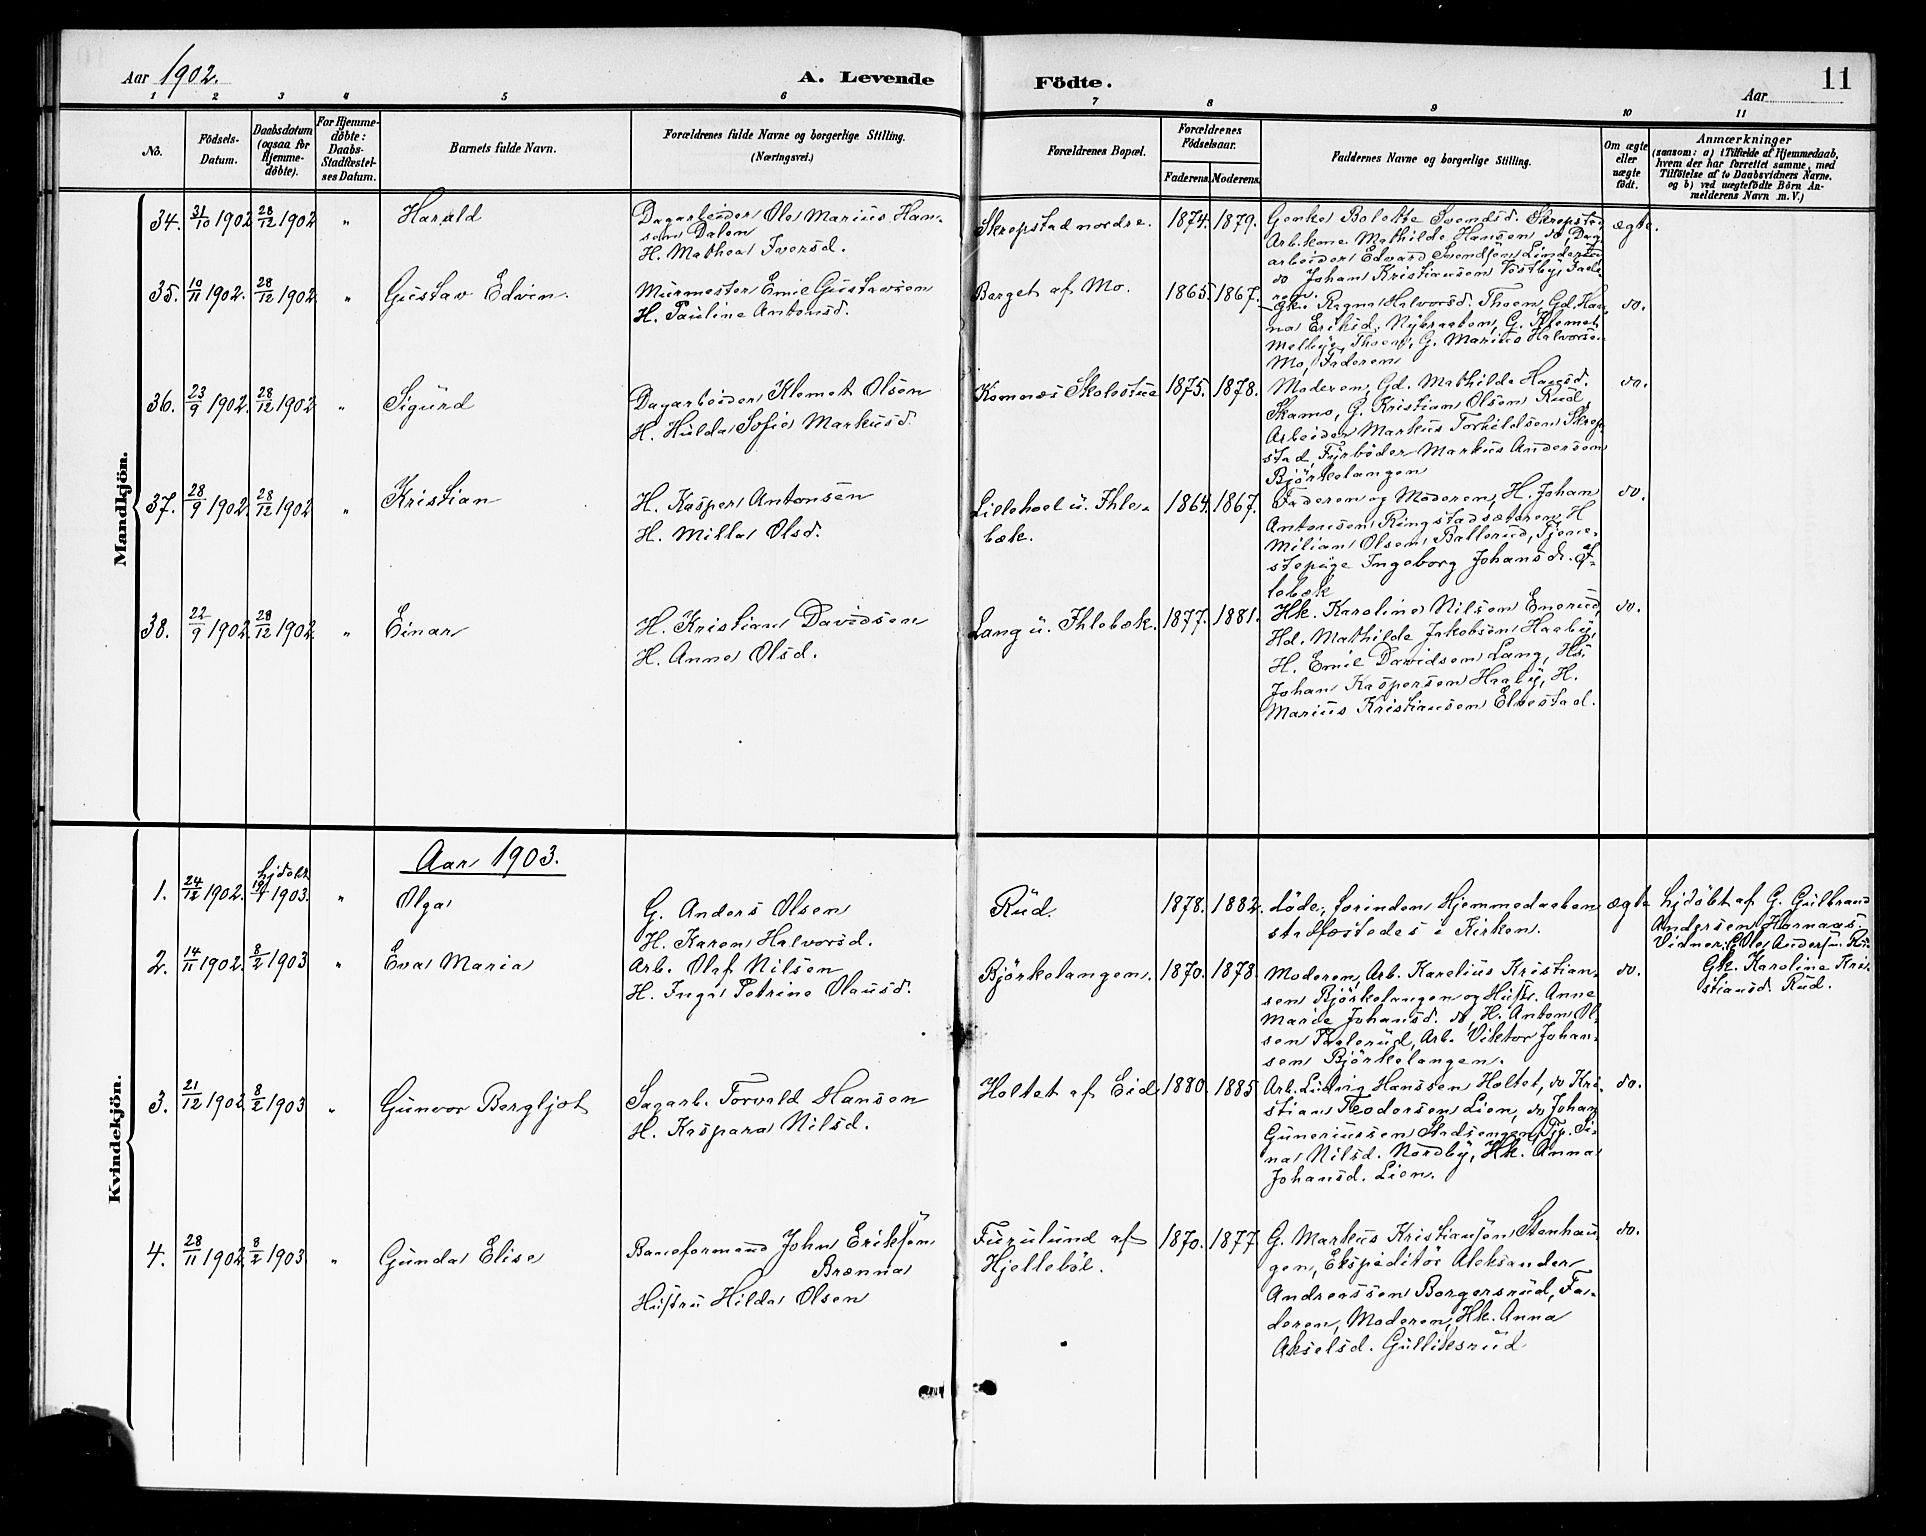 Aar 1902.
A. Levende Fødte.
Aar
11
1 2 3 4 5 6 7 8 9 10 11
No.
Fødsels-
Datum.
Daabsdatum
(ogsaa for
Hjemme-
døbte).
For Hjemme-
døbte:
Daabs-
Stadfæstel-
ses Datum.
Barnets fulde Navn.
Forældrenes fulde Navne og borgerlige Stilling.
(Næringsvei.)
Forældrenes Bopæl.
Forældrenes
Fødselsaar.
Faderens. Moderens.
Faddernes Navne og borgerlige Stilling.
Om ægte
eller
uægte
født.
Anmærkninger
(saasom: a) i Tilfælde af Hjemmedaab,
hvem der har forrettet samme, med
Tilføielse af to Daabsvidners Navne.
og b) ved uægtefødte Börn An-
melderens Navn m.V.)
Mandkjön.
34. 31/10 1902 28/12 1902 " Harald
Dagarbeider Ole Marius Han-
sen Dalen
H. Mathea Iversd.
Skrepstad nordre. 1874. 1879.
Gmke Bolette Svendsd. Skrepstad,
Arb.kone Mathilde Hansen do, Dag-
arbeider Edvard Svendsen Linderud
do Johan Kristiansen Vestby, Fade-
ren.
ægte.
35. 10/11 1902. 28/12 1902 " Gustav Edvin.
Murmester Emil Gustavsen
H. Pauline Antonsd.
Berget af Mo. 1865. 1867.
Gke. Ragna Halvorsd. Thoen, Gd. Han-
na Eriksd. Nybraaten, G. Klemet
Melbye Thoen, G. Marius Halvorsen
Mo, Faderen
do.
36. 23/9 1902 28/12 1902 " Sigurd
Dagarbeider Klemet Olsen
H. Hulda Sofie Markusd.
Komnæs Skolestue 1875. 1878.
Moderen, Gd. Mathilde Hansd.
Skamo, G. Kristian Olsen Rud,
Arbeider Markus Torkildsen Skrep-
stad, Fyrbøder Markus Andersen
Bjørkelangen
do.
37. 28/9 1902. 28/12 1902 " Kristian
H. Kasper Antonsen
H. Milla Olsd.
Lillehoel u. Ihle-
bæk.
1864. 1867.
Faderen og Moderen, H. Johan
Antonsen Ringstadsæteren, H
Milian Olsen Ballerud, Tjene-
stepige Ingeborg Johansd. af I-
lebæk
do.
38. 22/9 1902. 28/12 1902. " Einar
H. Kristian Davidsen
H. Anne Olsd.
Lang u. Ihlebæk. 1877. 1881.
Hk. Karoline Nilsen Enerud,
Hd. Mathilde Jakobsen Haaby,
H. Emil Davidsen Lang, Hs.
Johan Kaspersen Haaby, H.
Marius Kristiansen Elvestad.
do.
Kvindekjön.
Aar 1903.
1. 24/12 1902. hjdøbt 1903. " Olga
G. Anders Olsen
H. Karen Halvorsd.
Rud. 1878. 1882.
døde, forinden Hjemmedaaben
stadfæstedes i Kirken.
ægte
hjdøbt af G. Gulbrand
Andersen Hornaas.
Vidner: G. Ole Andersen Rud
Gk. Karoline Kri-
stiansd. Rud.
2. 14/11 1902. 8/2 1903 " Eva Maria
Arb. Olaf Nilsen
H. Inga Petrine Olausd.
Bjørkelangen. 1870. 1878.
Moderen, Arb. Karelius Kristian-
sen Bjørkelangen og Hustr. Anne
Marie Johansd. do, H. Anton Ol-
sen Fagerud, Arb. Viktor Johan-
sen Bjørkelangen.
do.
3. 21/12 1902 8/2 1903 " Gunvor Bergljot
Sagarb. Torvald Hansen
H. Kaspara Nilsd.
Holtet af Eid 1880. 1885
Arb. Ludvig Hanssen Holtet, do Kri-
stian Teodorsen Lien, do Johan
Guneriussen Stadsengen, Tjp. Si-
na Nilsd. Nordby, Hk. Anna
Johansd. Lien.
do.
4. 28/11 1902 8/2 1903 " Gunda Elise
Baneformand John Eriksen
Brænna
Hustru Hilda Olsen
Furulund af
Hjellebøl.
1870. 1877
G. Markus Kristiansen Stenhau-
gen, Ekspeditør Aleksander
Andreassen Borgersrud, Fa-
deren, Moderen, Hk. Anna
Akselsd. Gulliksrud
do.